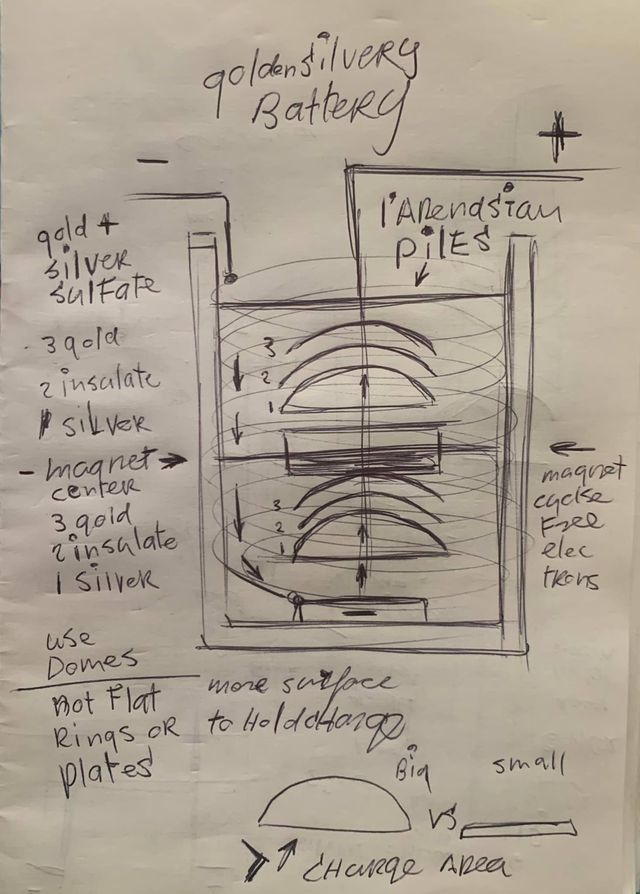 goldensilvery
Battery
-
+
l'ARendsiaN
PilES
gold +
silver
sulfate
3 gold
2 insulate
1 silver
- magnet
center
3 gold
2 insulate
1 silver
3
2
1
3
2
1
-
magnet
cycke
Free
elec
trons
use
Domes
Not Flat
Rings or
plates
more surface
to Hold charge
Big
VS
small
CHARGE AREA